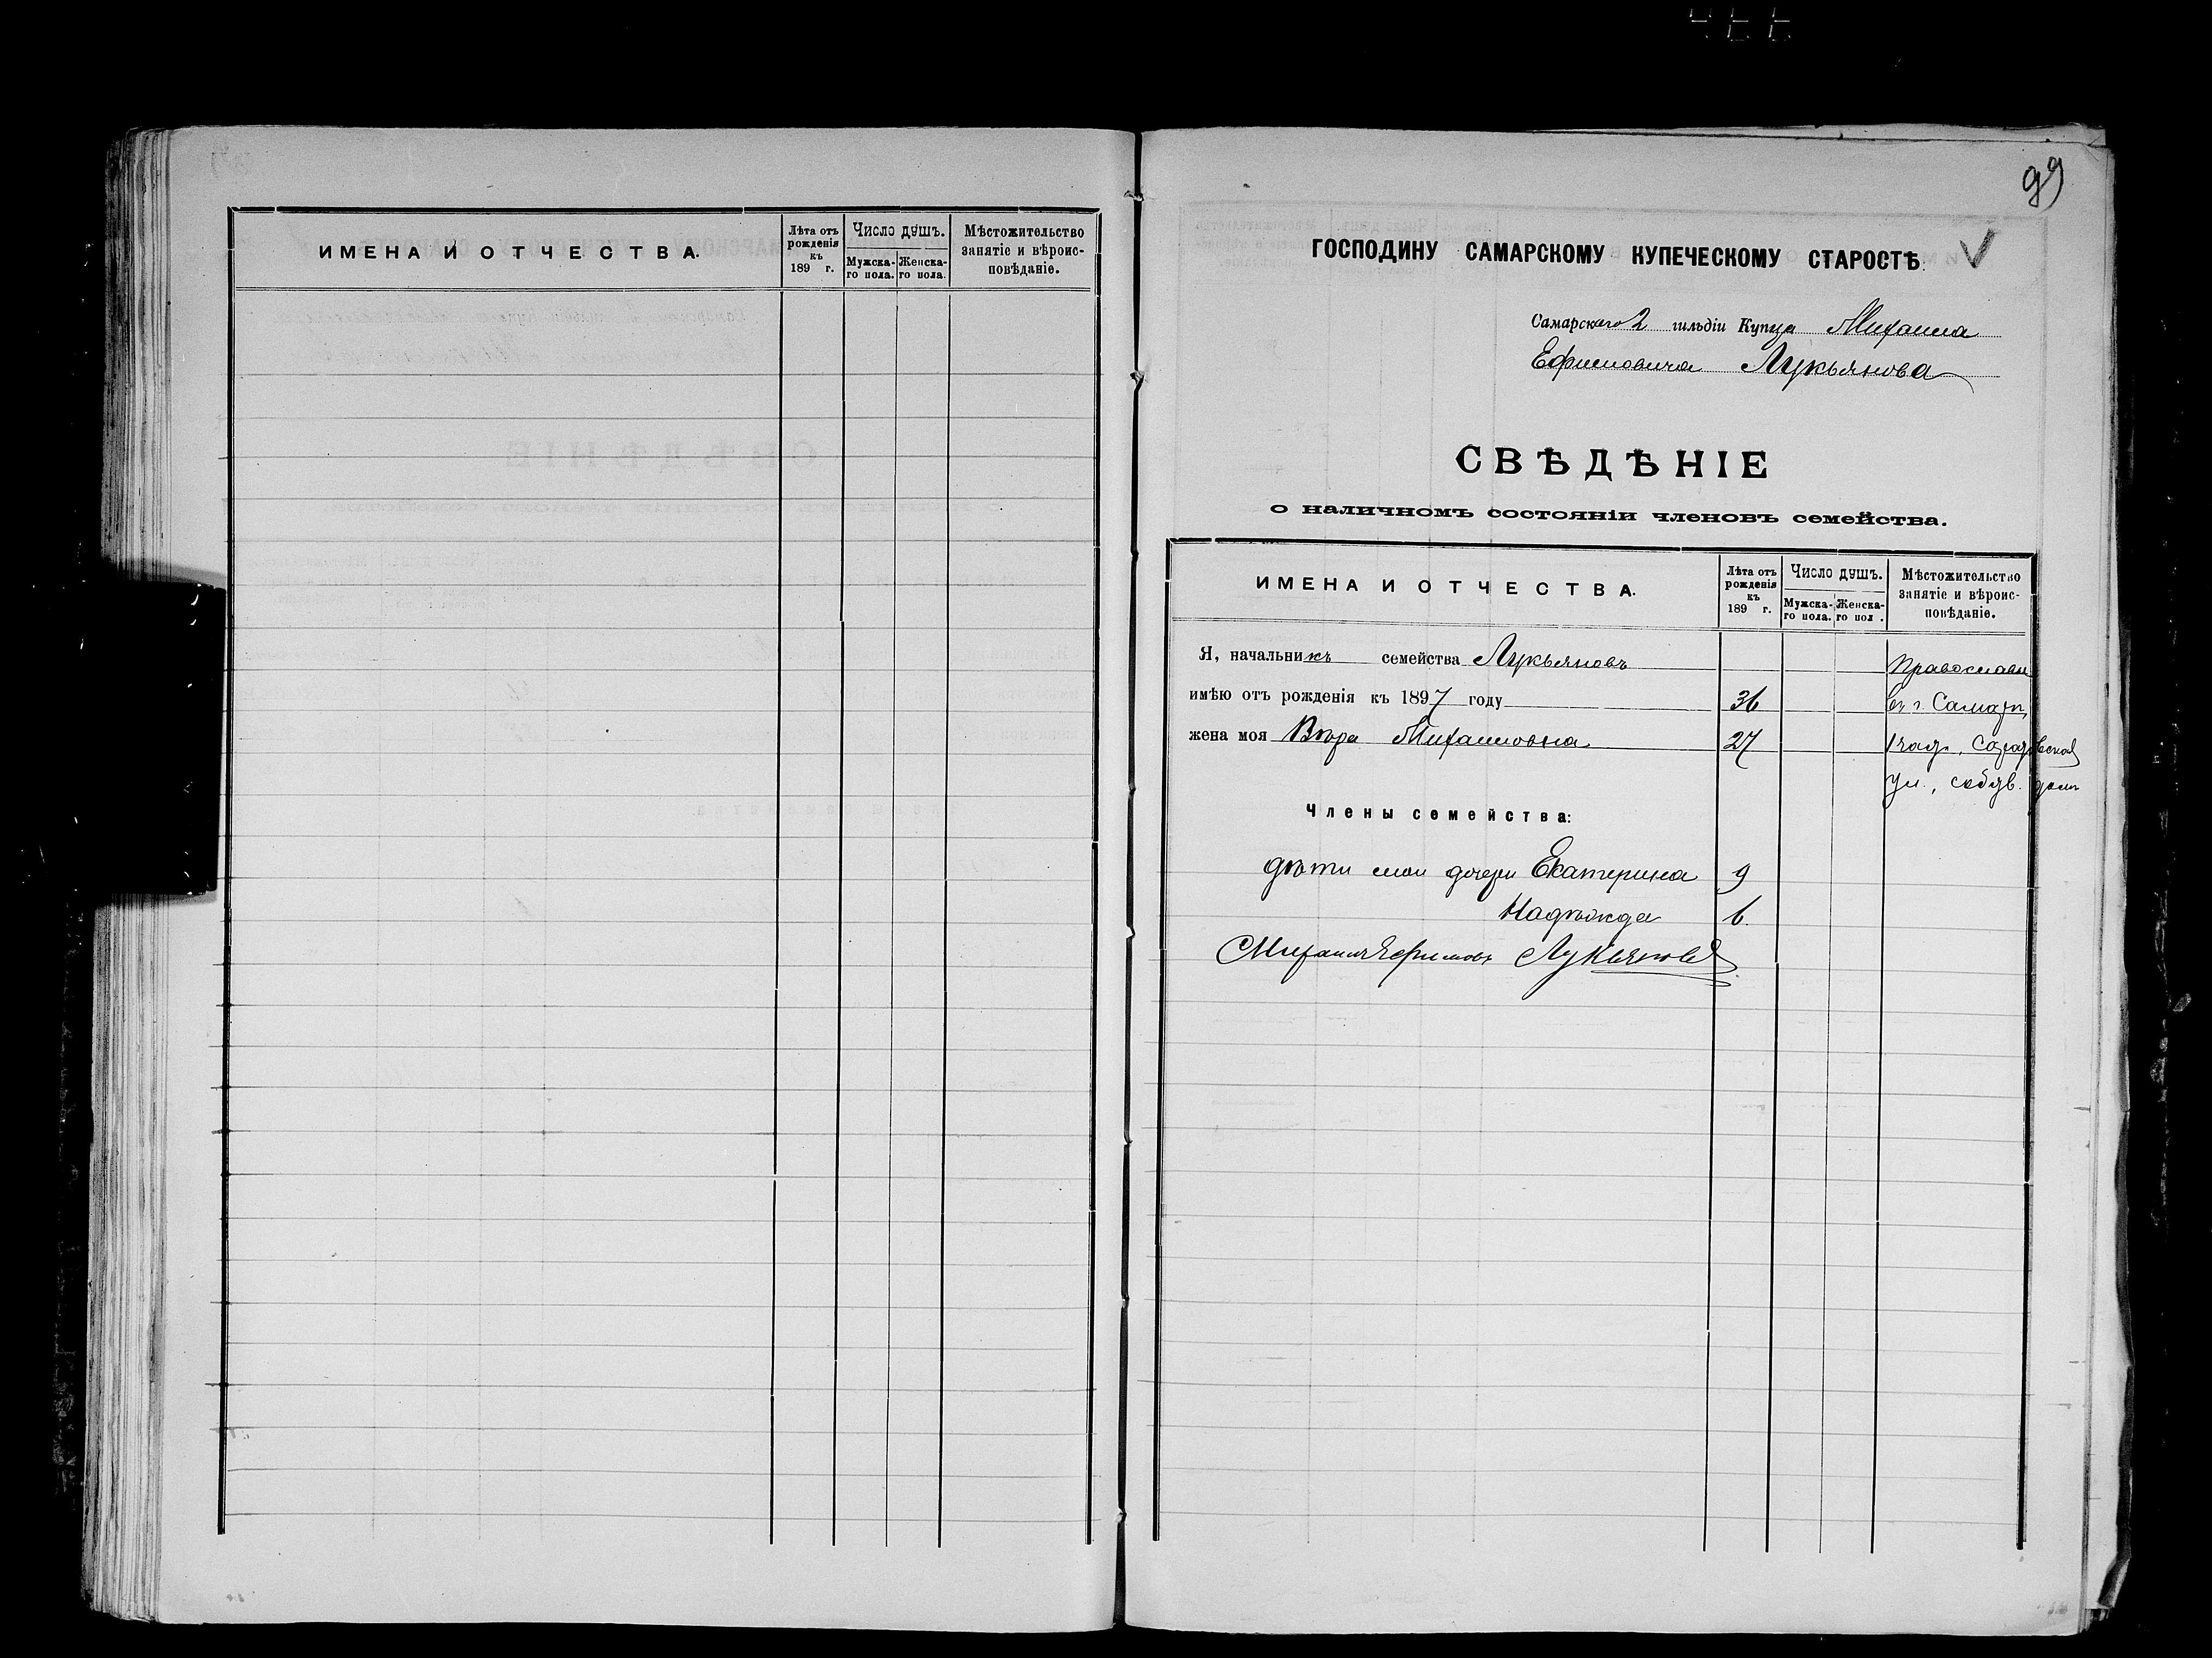 ИМЕНА И ОТЧЕСТВА.
Лѣта отъ рожденія къ 189 г.
Число душъ.
Мужска-го пола.
Женска-го пола.
Мѣстожительство занятіе и вѣроис-повѣданіе.
99
ГОСПОДИНУ САМАРСКОМУ КУПЕЧЕСКОМУ СТАРОСТѢ.
Самарскаго 2 гильдіи Купца Михаила
Ефимовича Лукьянова
СВѢДѢНІЕ
о наличномъ состояніи членовъ семейства.
ИМЕНА И ОТЧЕСТВА.
Лѣта отъ рожденія къ 189 г.
Число душъ.
Мужска-го пола.
Женска-го пол .
Мѣстожительство занятіе и вѣроис-повѣданіе.
Я, начальникъ семейства Лукьяновъ Православн
имѣю отъ рожденія къ 1897 году 36 въ г. Самарѣ,
жена моя Вѣра Михаиловна 27 1 час., Саратовская
ул., собств. домъ
Члены семейства:
дѣти мои дочери Екатерина 9
Надѣжда 6.
Михаилъ Ефимовъ Лукьяновъ